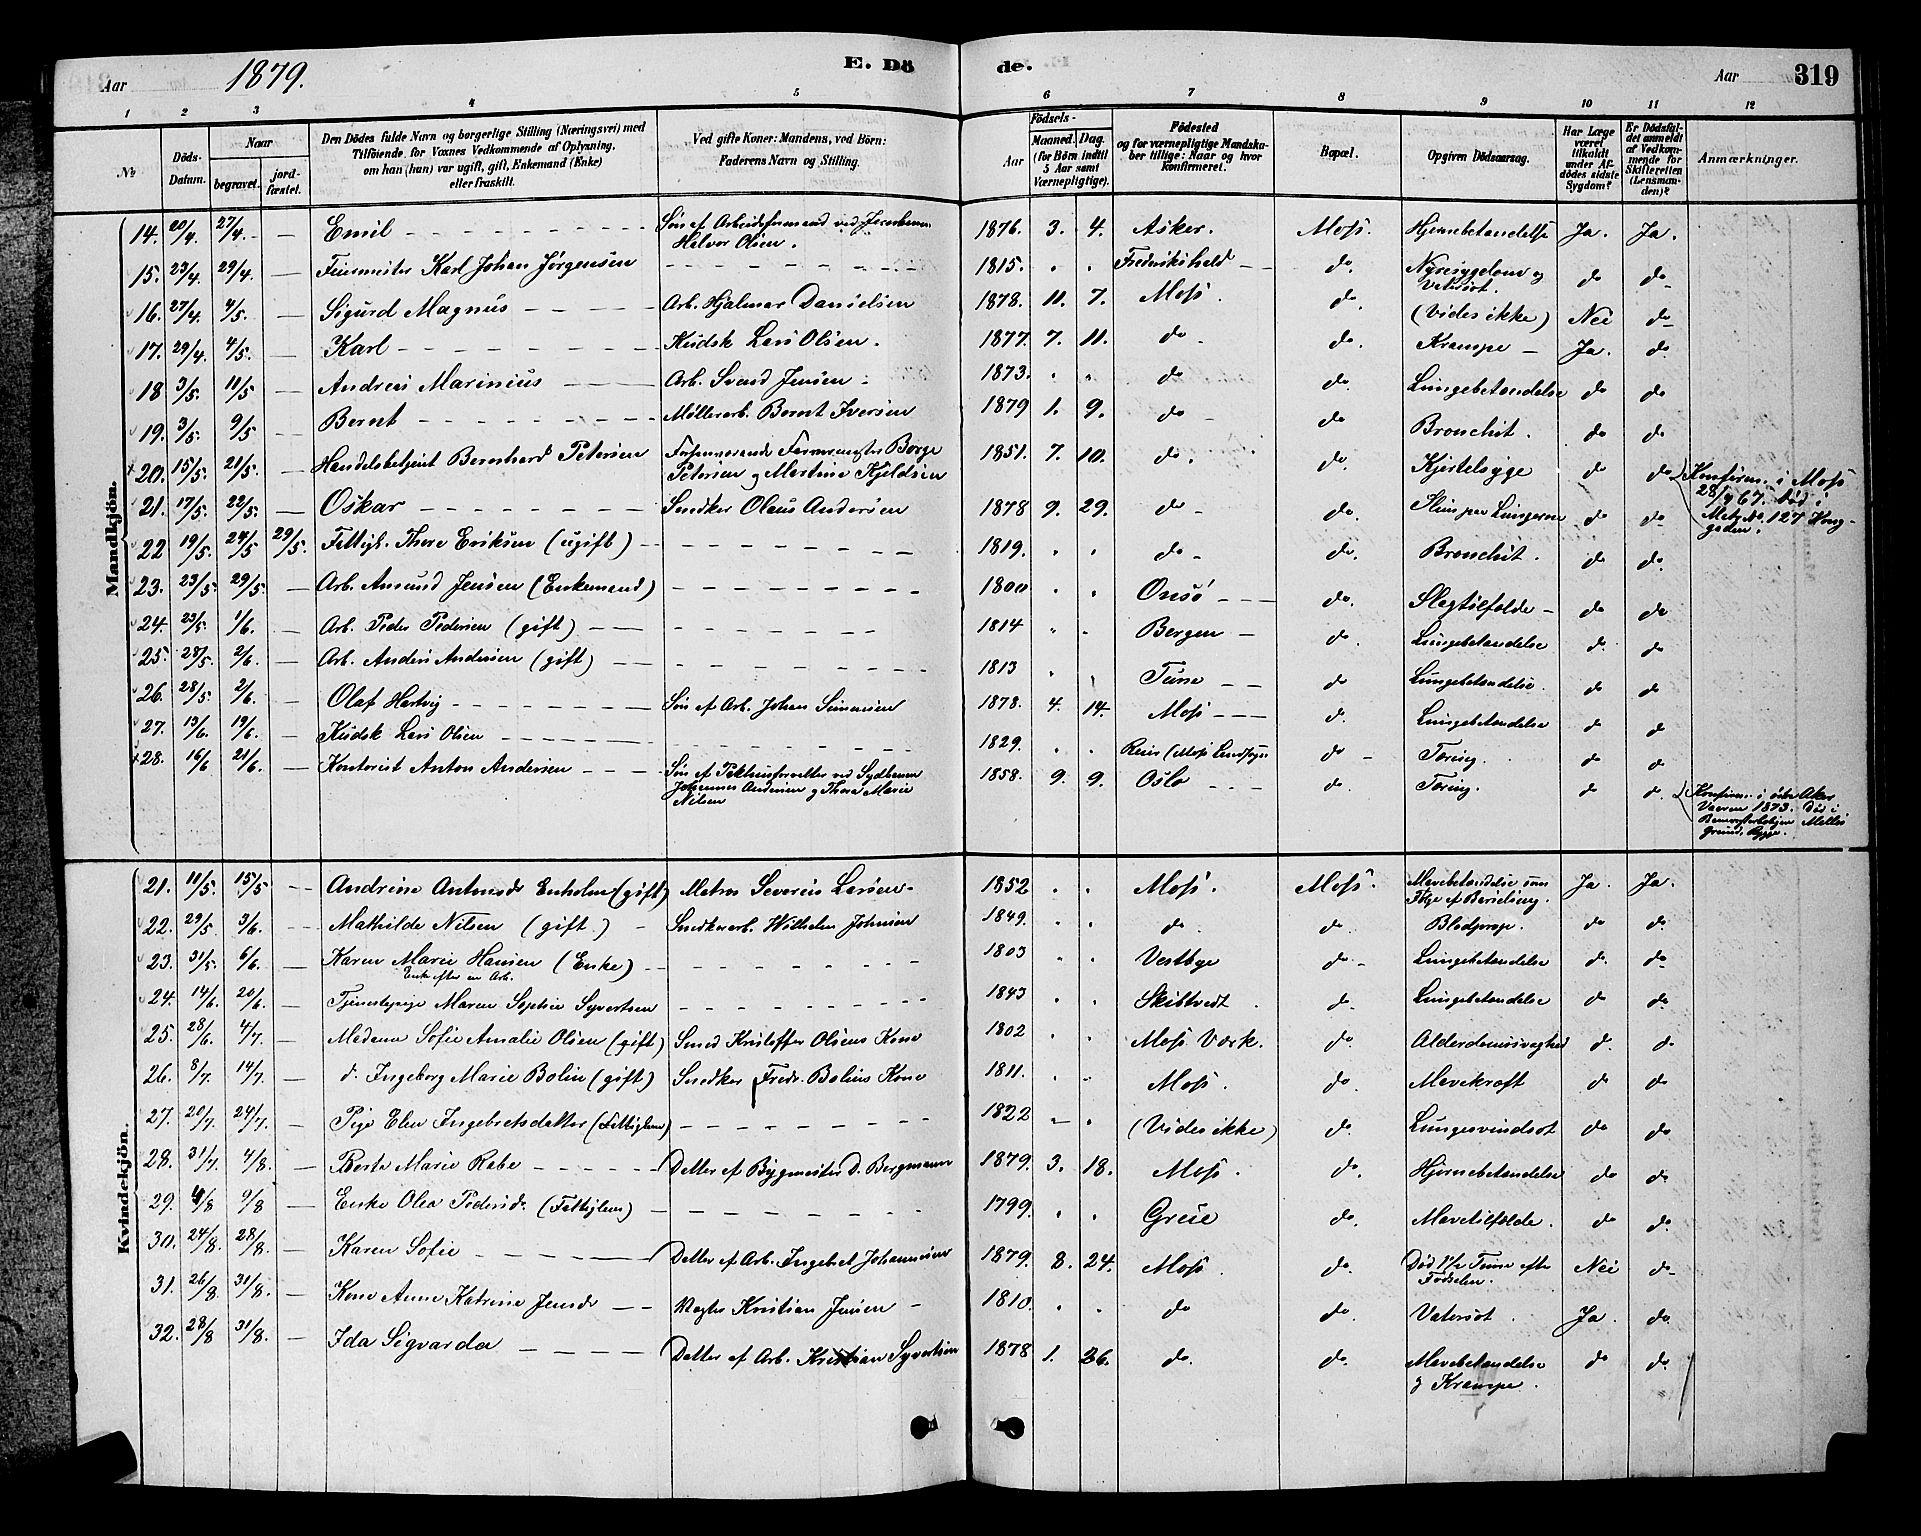 Aar 1879. E. Dö de. Aar 319
1 2 3 4 5 6 7 8 9 10 11 12
№ Döds-Datum. Naar begravet. jordfæstet. Den Dödes fulde Navn og borgerlige Stilling (Næringsvei) med Tilföiende for Voxnes Vedkommende af Oplysning, om han (hun) var ugift, gift, Enkemand (Enke) eller fraskilt. Ved gifte Koner: Mandens, ved Börn: Faderens Navn og Stilling. Födsels- Aar Maaned. Dag. (for Börn indtil 5 Aar samt Værnepligtige). Födested og for værnepligtige Mandskaber tillige: Naar og hvor konfirmeret. Bopæl. Opgiven Dödsaarsag. Har Læge været tilkaldt under Afdödes sidste Sygdom? Er Dödsfaldet anmeldt af Vedkommende for Skifteretten (Lensmanden)? Anmærkninger.
Mandkjön.
14. 20/4. 27/4. — Emil Sön af Arbeidsformand ved Jernbanen Halvor Olsen. 1876. 3. 4. Asker. Moss. Hjernebetændelse Ja. Ja.
15. 23/4 29/4. — Feiermester Karl Johan Jørgensen 1815. " " Frederikshald do. Nyresygdom og Vatersot. do do
16. 27/4. 4/5. — Sigurd Magnus Arb. Hjalmar Danielsen 1878. 11. 7. Moss. do. (Vides ikke) Nei do
17. 29/4 4/5. — Karl Kudsk Lars Olsen. 1877. 7. 11. do do. Krampe Ja. do.
18 3/5. 11/5. — Andreas Marinius Arb. Svend Jensen 1873. " " do do. Lungebetændelse do do
19. 3/5. 9/5. — Bernt Møllerarb. Bernt Iversen 1879 1. 9. do do Bronchit. do do
20. 15/5. 21/5. — Handelsbetjent Bernhard Petersen Petersen og Martine Kjeldsen 1851. 7. 10. do. do. Kjertelsyge do do Konfirm. i Moss 28/4 67. Død i Matr. No. 127 Kongsgaden.
21. 17/5. 22/5. — Oskar Snedker Olaus Andersen 1878 9. 29. do do. Slim paa Lungerne do do
22 19/5. 24/5 29/5. Fattigl. Thore Eriksen (ugift) 1819. " " do do. Bronchit. do do.
23. 23/5. 29/5. — Arb. Amund Jensen (Enkemand) 1800 " " Onsö do. Slagtilfælde do do
24. 23/5. 1/6. — Arb. Peder Pedersen (gift) 1814 " " Bergen do. Lungebetændelse do. do
25. 28/5. 2/6. — Arb. Anders Andersen (gift) 1813 " " Tune do Lungebetændelse. do do
26. 28/5. 2/6. — Olaf Hartvig Sön af Arb. Johan Simensen 1878. 4. 14. Moss d. Lungebetændelse do do
27. 13/6. 19/6. — Kudsk Lars Olsen 1829. " " Reier (Moss Landsogn do Tæring. do do
28. 16/6 21/6. — Kontorist Anton Andersen Sön af Pakhusforvalter ved Sydbanen Johannes Andersen og Thora Marie Nilsen 1858. 9. 9. Oslo do. Tæring. do d. Konfirm. i östre Aker Vaaren 1873. Död i Melløs Grund, Rygge.
Kvindekjön.
21. 11/5. 15/5 — Andrine Antonsdr Enholm (gift) Matros Severin Larsen 1852 " " Moss. Moss. Mavebetændelse som Fölge af Barselseng. Ja. Ja.
22. 29/5 3/6. — Mathilde Nilsen (gift.) Snedkerarb. Wilhelm Johnsen 1849. " " do. do. Blodprop. do do.
23. 31/5. 6/6. — Karen Marie Hansen (Enke) Enke efter en Arb. 1803 " " Vestbye do Lungebetændelse do. do
24. 14/6. 20/6. — Tjenestepige Maren Sophie Syvertsen 1843 " " Skibtvedt do. Lungebetændelse do do
25. 28/6. 4/7. — Madam Sofie Amalie Olsen (gift) Smed Kristoffer Olsens Kone 1802 " " Moss Værk. do. Alderdomssvaghed d. d.
26. 8/7. 14/7. — d. Ingeborg Marie Bolin (gift) Snedker Fredr. Bolins Kone 1811. " " Moss. do. Mavekræft do do
27. 20/7. 24/7. — Pige Elen Ingebretsdatter (Fattiglem) 1822 " " (Vides ikke) do. Lungesvindsot do do
28. 31/7. 4/8. — Berte Marie Rabe Datter af Bygmester D. Bergmann 1879. 3. 18. Moss. do. Hjernebetændelse do do
29. 4/8 9/8 — Enke Olea Pedersd. (Fattiglem) 1799. " " Grue do. Mavetilfælde. do do.
30. 24/8. 28/8. — Karen Sofie Datter af Arb. Ingebret Johannesen 1879. 8. 24. Moss. do. Död 1 1/2 Time efter Fødselen. Nei do
31. 26/8. 31/8. — Kone Anne Katrine Jensdr Vægter Kristian Jensen 1810. " " do do. Vatersot. Ja. do.
32. 28/8 31/8. — Ida Sigvarda Datter af Arb. Kristian Syvertsen 1878 1. 26. do. do. Mavebetændelse og Krampe. do do.